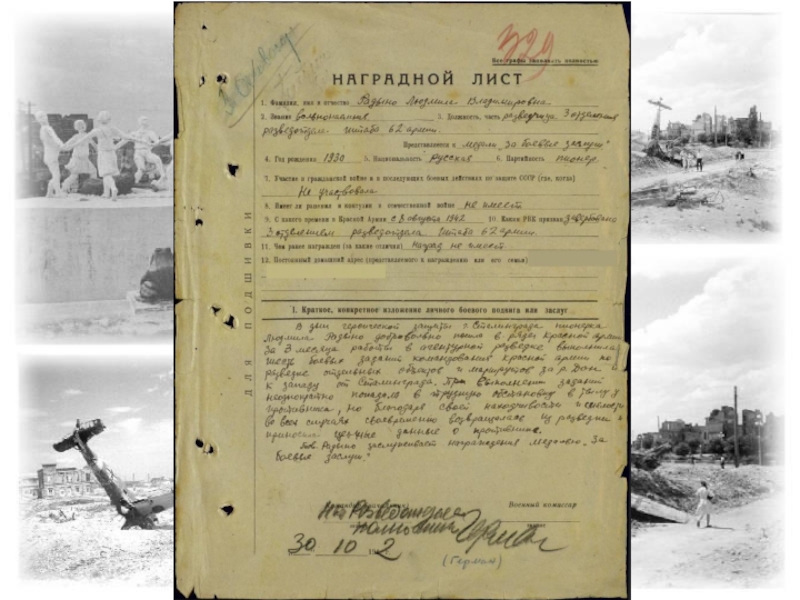 329
Все графы заполнять полностью
НАГРАДНОЙ ЛИСТ
1. Фамилия, имя и отчество Радыно Людмила Владимировна
2. Звание вольнонаемная 3. Должность, часть разведчица 3 отделения
разведотдела штаба 62 армии.
Представляется к медали „За боевые заслуги"
4. Год рождения 1930 5. Национальность Русская 6. Партийность пионер.
7. Участие в гражданской войне и в последующих боевых действиях по защите СССР (где, когда)
Не участвовала
8. Имеет ли ранения и контузии в отечественной войне не имеет
9. С какого времени в Красной Армии с 8 августа 1942 10. Каким РВК призван завербована
3 отделением разведотдела штаба 62 армии.
11. Чем ранее награжден (за какие отличия) Наград не имеет
12. Постоянный домашний адрес (представляемого к награждению или его семьи)
ДЛЯ ПОДШИВКИ
I. Краткое, конкретное изложение личного боевого подвига или заслуг
В дни героической защиты г. Сталинграда пионерка
Людмила Радыно добровольно пошла в ряды Красной армии
За 3 месяца работы в агентурной разведке выполнила
шесть боевых заданий командования красной армии по
разведке отдельных объектов и маршрутов за р. Дон и
к западу от Сталинграда. При выполнении заданий
неоднократно попадала в трудную обстановку в тылу у
противника, но благодаря своей находчивости и смелости
во всех случаях своевременно возвращалась из разведки и
приносила ценные данные о противнике.
Тов. Радыно заслуживает награждения медалью „За
боевые заслуги."
Военный комиссар
Нач Разведотдела
полковник Герман
30 10 2
(Герман)